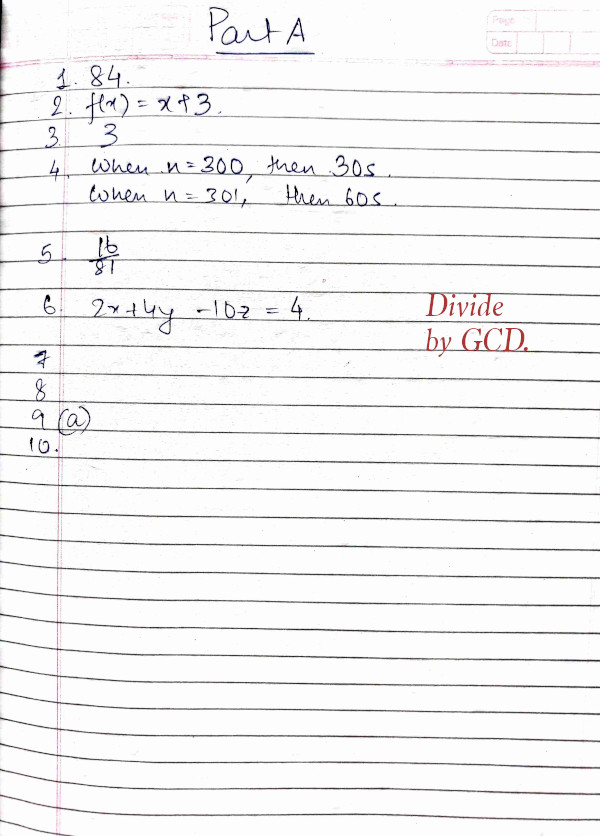 Part A
Page
Date
1. 84.
2. f(x) = x+3.
3. 3
4. When n=300, then 30s.
When n=301, then 60s.
5. 16/81
6. 2x+4y -10z = 4.
Divide
by GCD.
7
8
9 (a)
10.